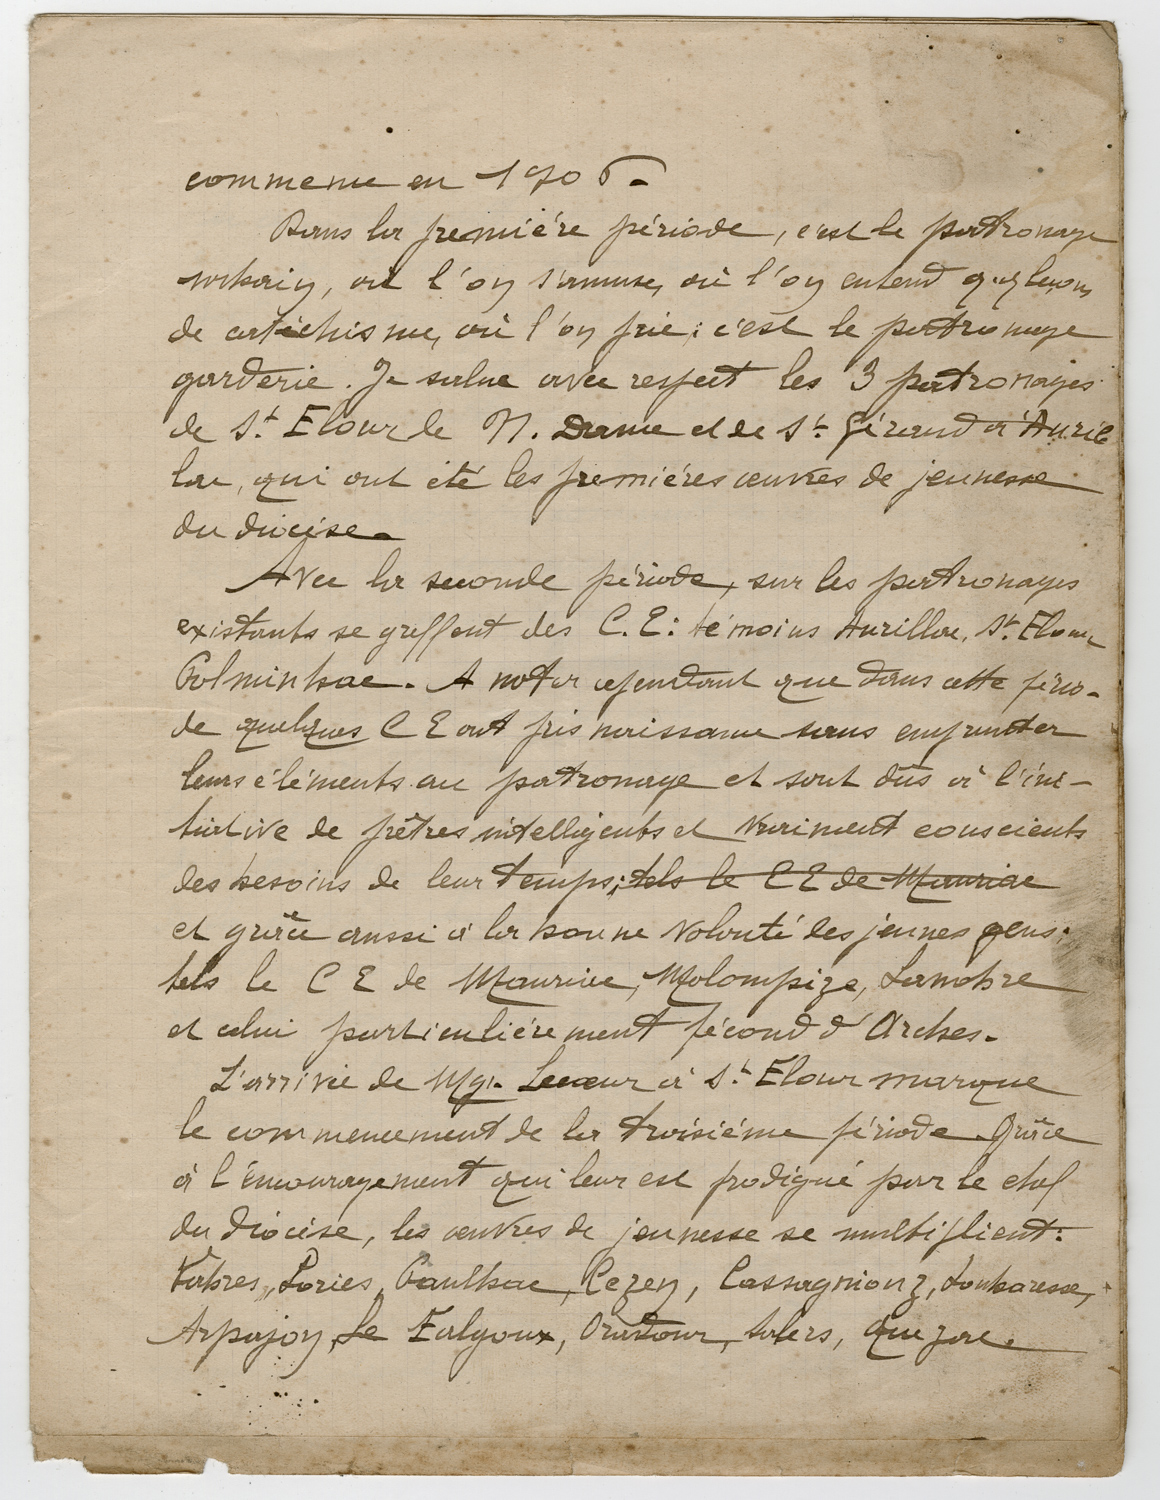 commence en 1906.
Dans la première période, c'est le patronage
urbain, où l'on s'amuse, où l'on entend qq leçons
de catéchisme, où l'on prie ; c'est le patronage
garderie. Je salue avec respect les 3 patronages
de St Flour le N. Dame et de St Géraud à Auril
lac, qui ont été les premières œuvres de jeunesse
du diocèse.
Avec la seconde période, sur les patronages
existants se greffent des C.E : témoins Aurillac, St. Flour
Polminhac. A noter cependant que dans cette pério-
de quelques C E ont pris naissance sans emprunter
leurs éléments au patronage et sont dûs à l'ini-
tiative de prêtres intelligents et vraiment conscients
des besoins de leur temps ; tels le C E de Mauriac
et grâce aussi à la bonne volonté des jeunes gens :
tels le C E de Mauriac, Molompize, Lanobre
et celui particulièrement fécond d'Arches.
L'arrivée de Mgr. Lecœur à St Flour marque
le commencement de la troisième période. Grâce
à l'encouragement qui leur est prodigué par le chef
du diocèse, les œuvres de jeunesse se multiplient :
Vabres, Lories, Paulhac, Cezen, Cassagniouz, Loubaresse,
Arpajon, Le Falgoux, Oradour, Salers, Quezac.